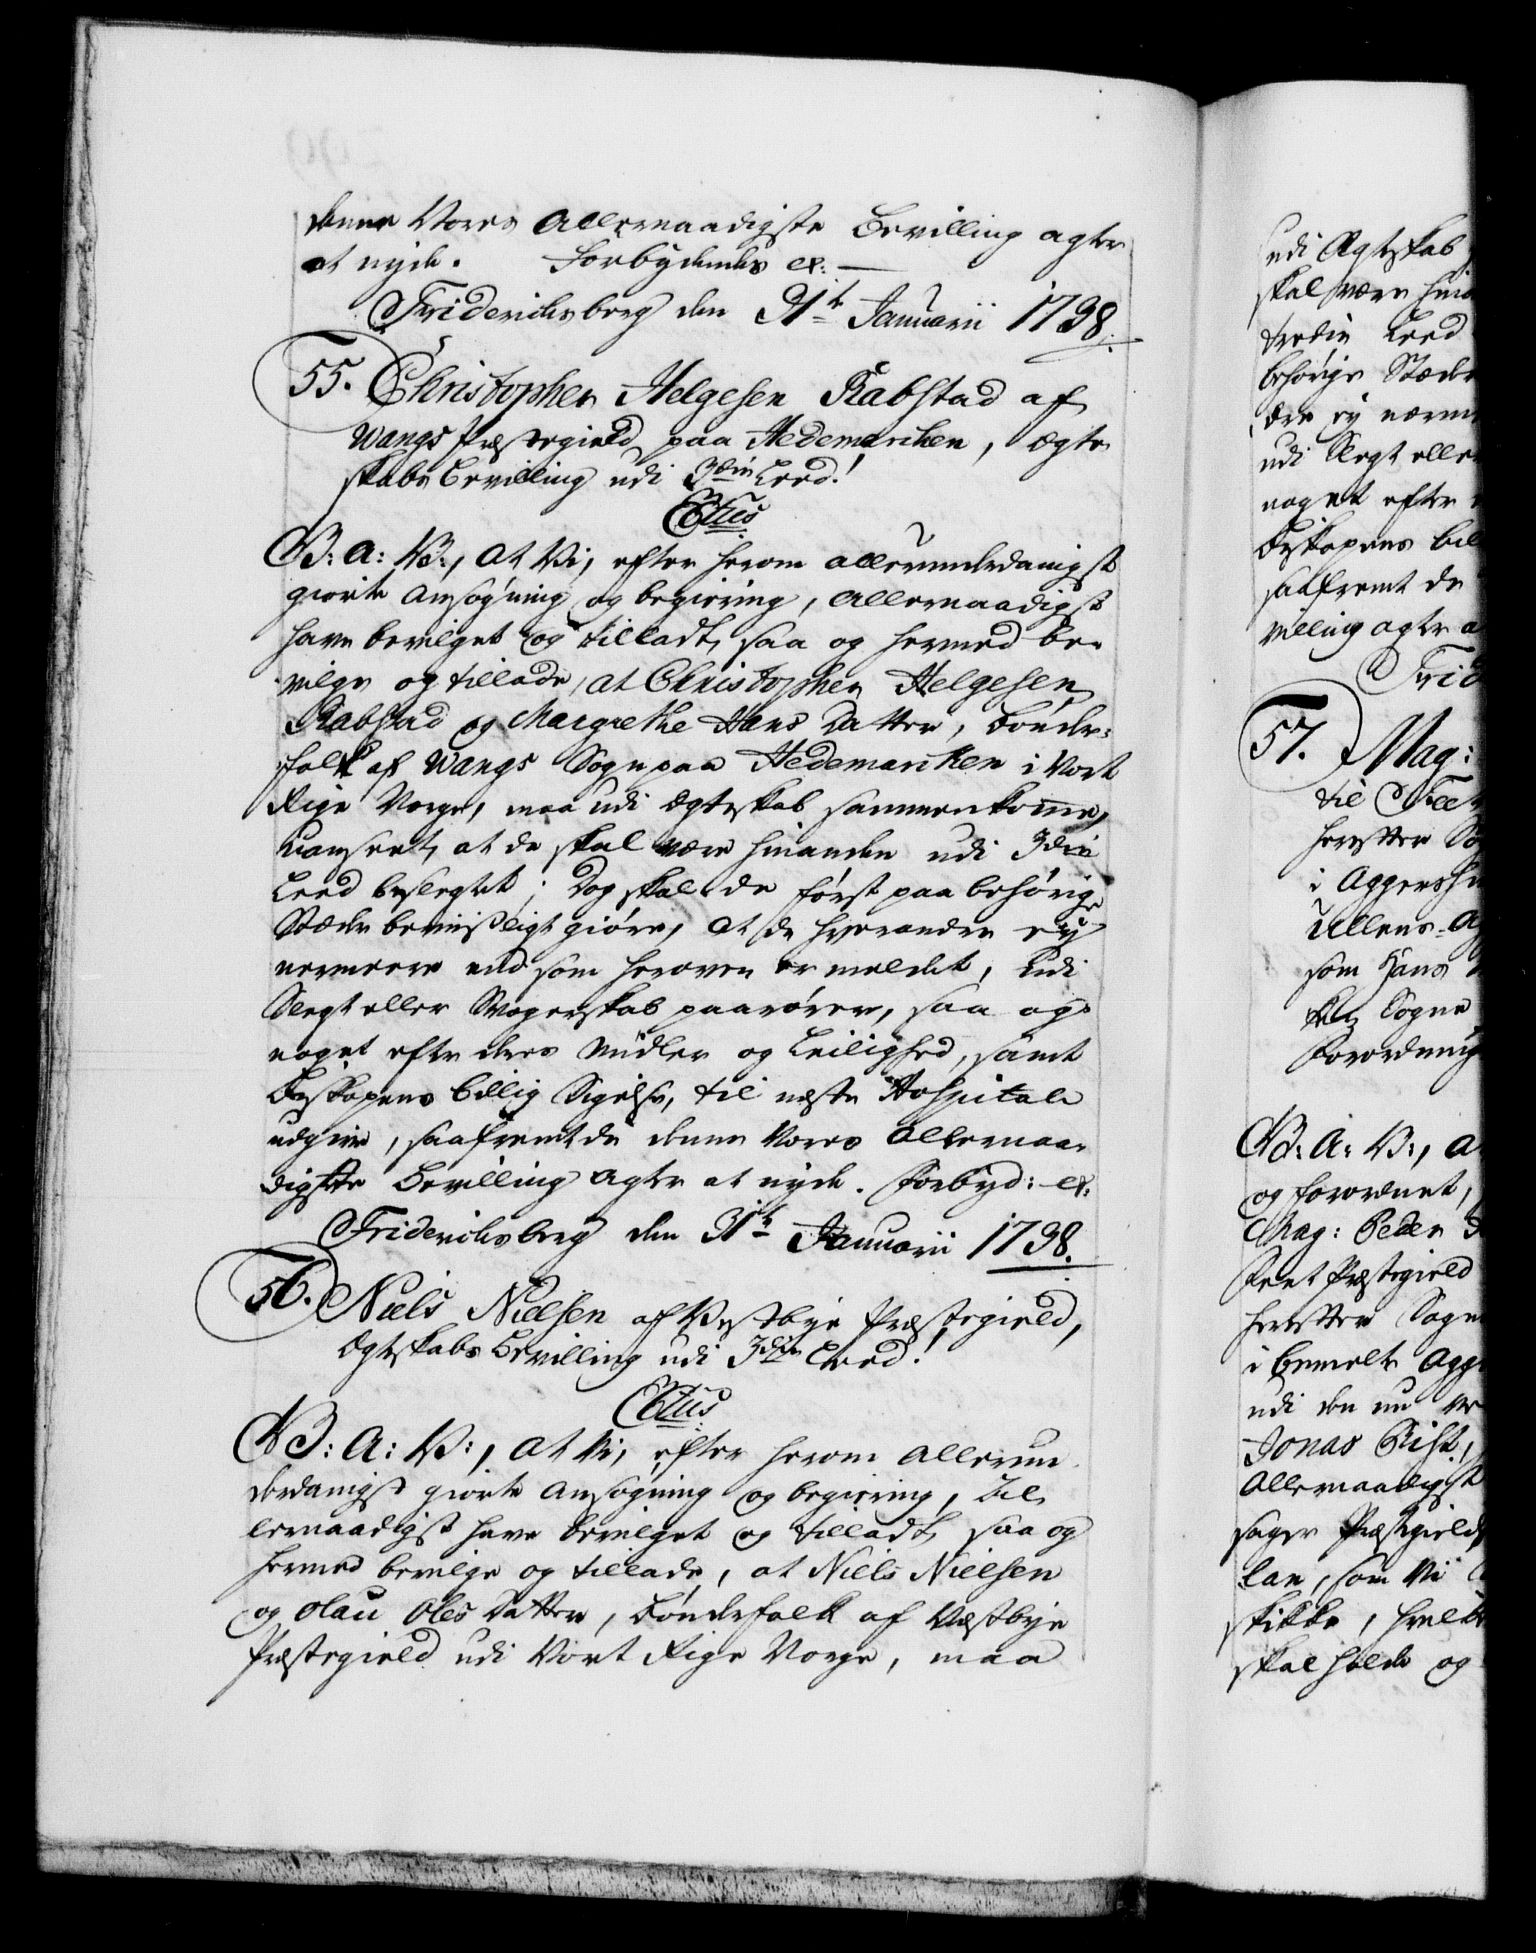 denne Vores Allernaadigste Bevilling agter
at nyde. Forbydendes etc: —
Friderichsberg den 31te Januarii 1738.
55. Christopher Helgesen Rabstad af
Wangs Præstegield paa Hedemarchen, Ægte
skabs Bevilling udi 3die Leed!
C6tus
V: A: V:, at Vi, efter herom allerunderdanigst
giorte Ansøgning og begiering, allernaadigst
have bevilget og tilladt, saa og hermed be-
vilge og tillade, at Christopher Helgesen
Rabstad og Margrethe Hans Datter, Bønder-
folk af Wangs Sogn paa Hedemarken i Vort
Rige Norge, maa udi Ægteskab sammenkomme,
uanseet, at de skal være hinanden udi 3die
Leed beslegtet; Dog skal de først paa behørige
Stæder beviisligt giøre, at de hverandre ey
nermere end som heroven er meldet, udi
Slegt eller Svogerskab paarører, saa og
noget efter deres Midler og Leilighed, samt
Biskopens billig Sigelse, til neste Hospitale
udgive, saafremt de denne Vores Allernaa-
digste Bevilling agter at nyde. Forbyd: etc:
Friderichsberg den 31te Januarii 1738.
56. Niels Nielsen af Westbye Præstegield,
Ægteskabs Bevilling udi 3die Leed!
V: A: V:, at Vi, efter herom allerun
derdanigst giorte Ansøgning og begiering, Al
lernaadigst have bevilget og tilladt, saa og
hermed bevilge og tillade, at Niels Nielsen
og Olau Oles Datter, Bønderfolk af Westbye
Præstegield udi Vort Rige Norge, maa
udi Ægteskab
skal være hina
tredie Leed
behørige Stæder
dre ey nærm
udi Slegt elle
noget efter
Biskopens bil
saafremt de
villing agter a
Frid
57. Mag:
til Feet
herretter So
i Aggersh
Ullens-A
som Hans
Sogne
Forordning
V: A: V:, a
og forordnet,
Mag: Peder
Feet Præstegield
herretter Sogn
i bemelte Agg
udi den nu
Jonas
Allernaadigst
sager Præstegield
lan, som Vi
skikke, hvilk
skal holde og